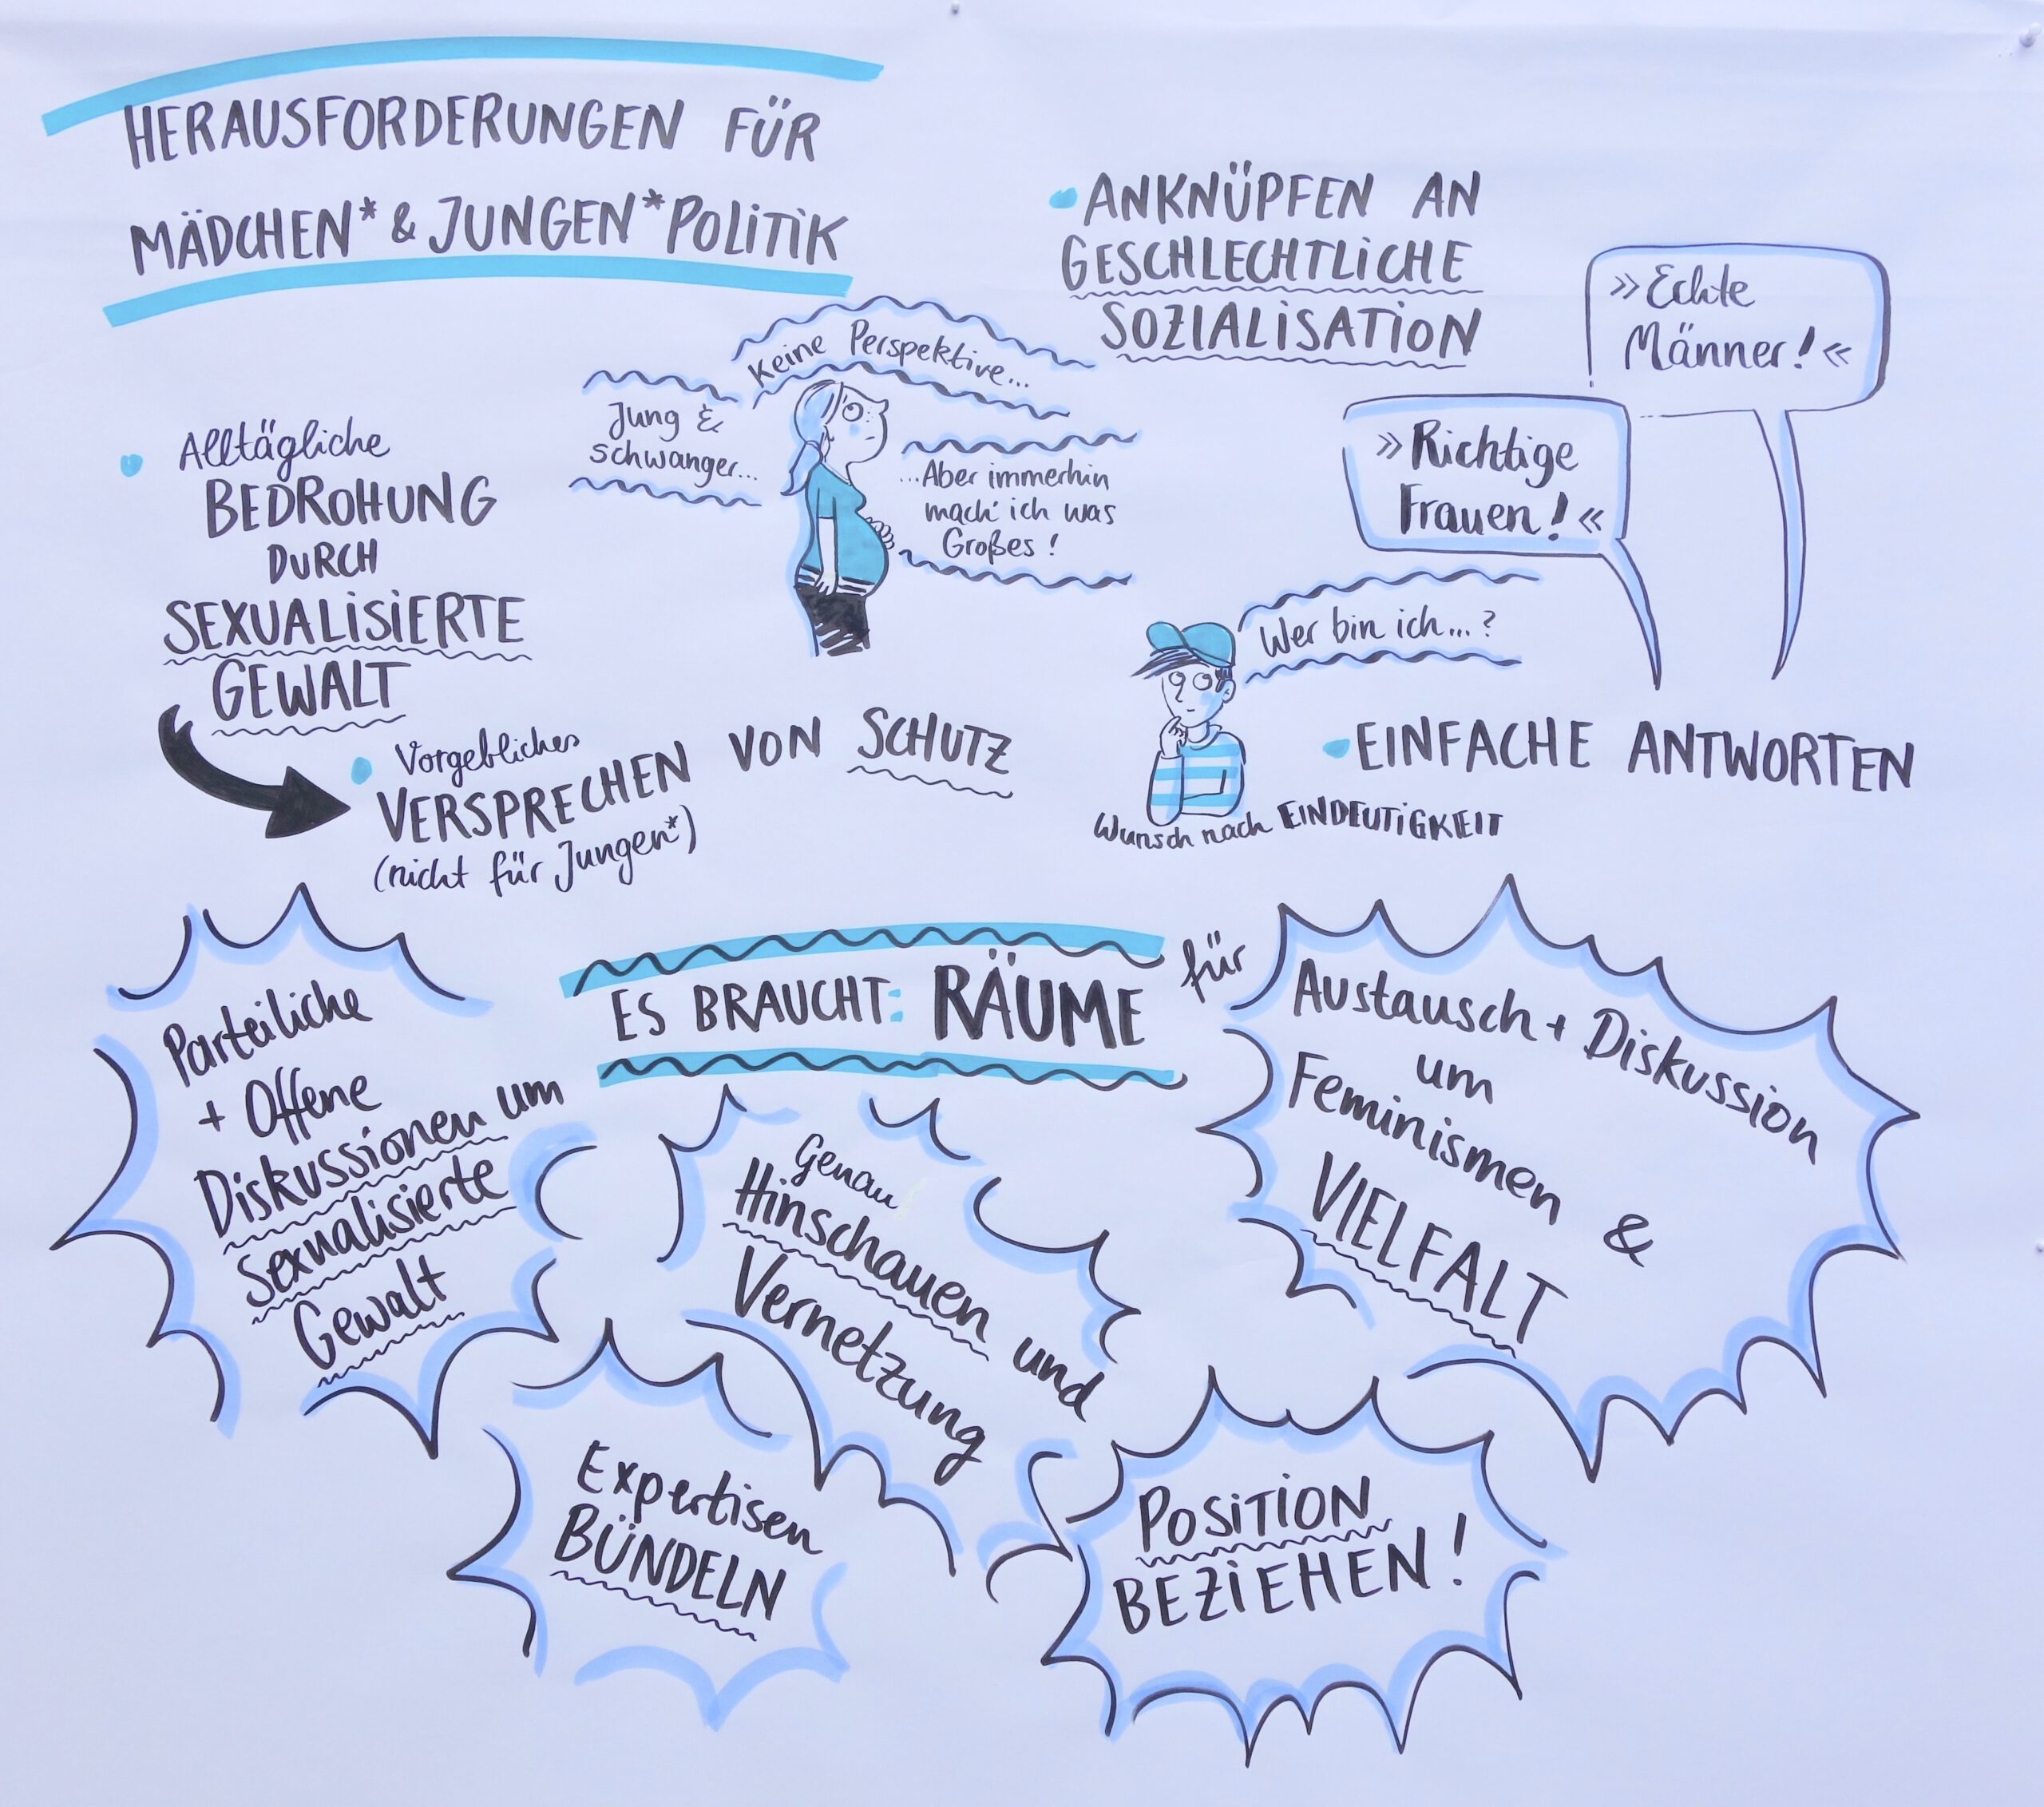 HERAUSFORDERUNGEN FÜR
MÄDCHEN* & JUNGEN*POLITIK
• Alltägliche
BEDROHUNG
DURCH
SEXUALISIERTE
GEWALT
• Vorgebliches
VERSPRECHEN VON SCHUTZ
(nicht für Jungen*)
Jung &
schwanger...
Keine Perspektive...
...Aber immerhin
mach' ich was
Großes!
• ANKNÜPFEN AN
GESCHLECHTLICHE
SOZIALISATION
»Echte
Männer!«
»Richtige
Frauen!«
Wer bin ich...?
• EINFACHE ANTWORTEN
Wunsch nach EINDEUTIGKEIT
ES BRAUCHT: RÄUME für
Parteiliche
+ Offene
Diskussionen um
Sexualisierte
Gewalt
Genau
Hinschauen und
Vernetzung
Austausch + Diskussion
um
Feminismen &
VIELFALT
Expertisen
BÜNDELN
POSITION
BEZIEHEN!